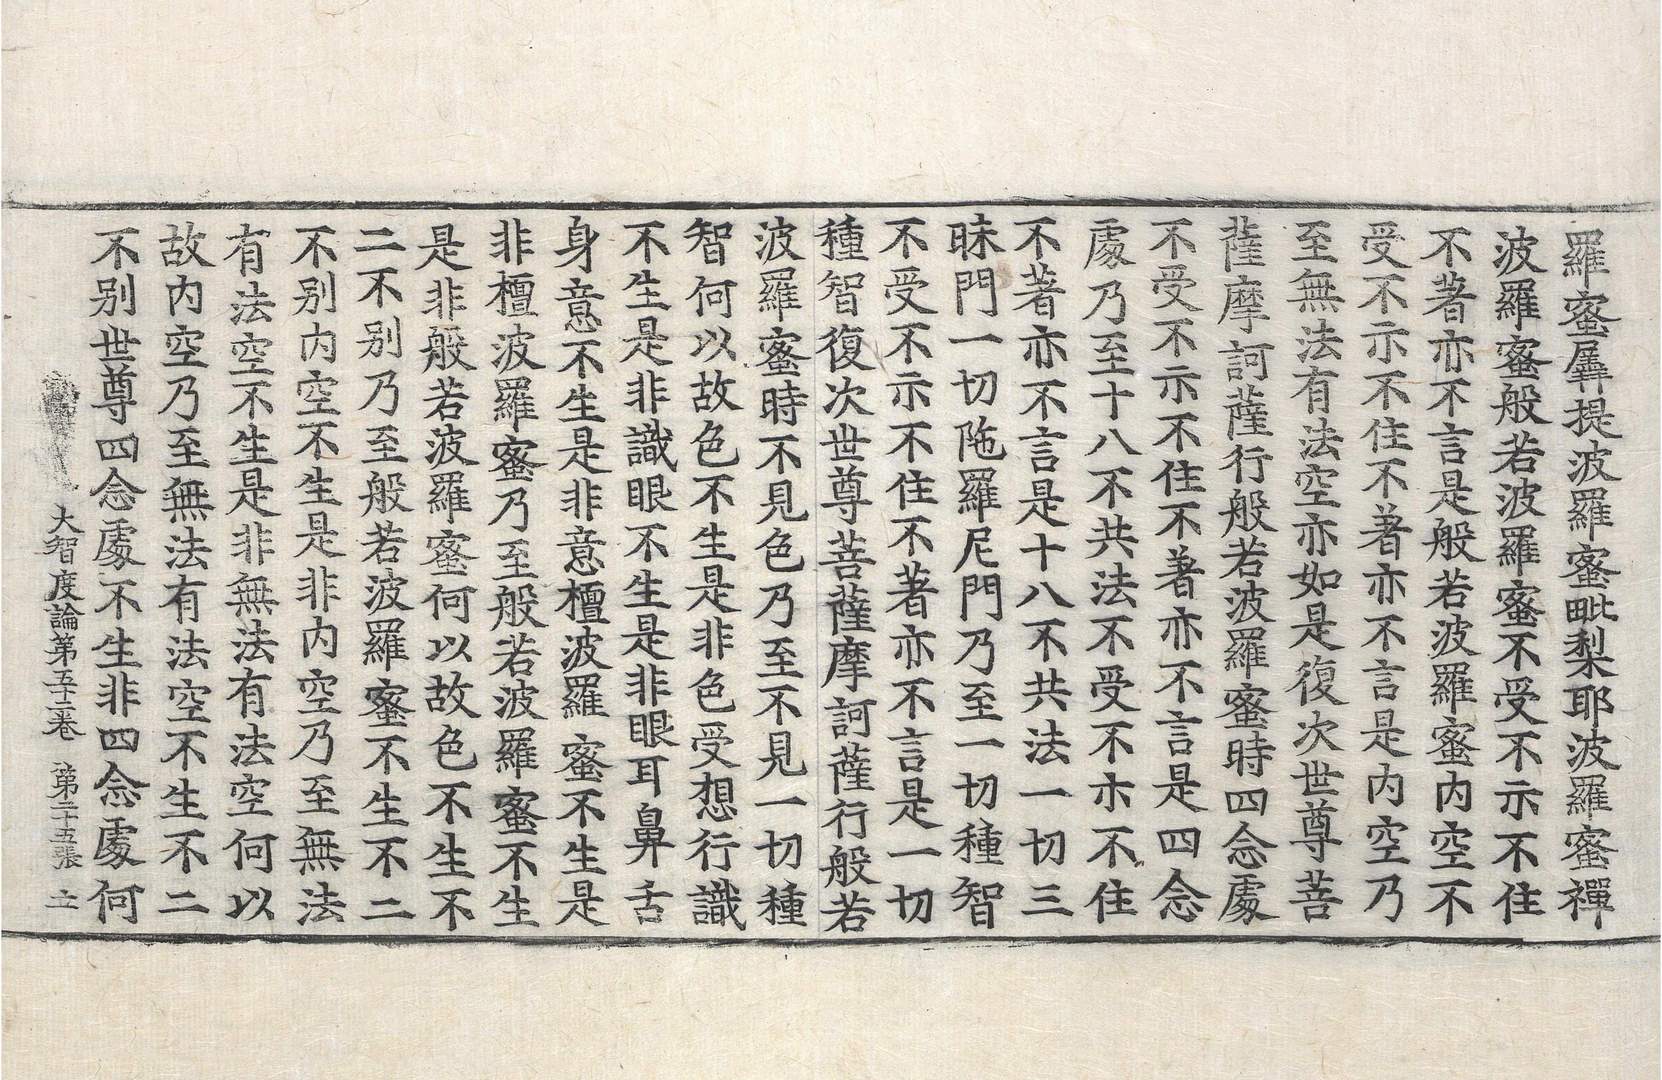 羅蜜羼提波羅蜜毗梨耶波羅蜜禪
波羅蜜般若波羅蜜不受不示不住
不著亦不言是般若波羅蜜內空不
受不示不住不著亦不言是內空乃
至無法有法空亦如是復次世尊菩
薩摩訶薩行般若波羅蜜時四念處
不受不示不住不著亦不言是四念
處乃至十八不共法不受不示不住
不著亦不言是十八不共法一切三
昧門一切陁羅尼門乃至一切種智
不受不示不住不著亦不言是一切
種智復次世尊菩薩摩訶薩行般若
波羅蜜時不見色乃至不見一切種
智何以故色不生是非色受想行識
不生是非識眼不生是非眼耳鼻舌
身意不生是非意檀波羅蜜不生是
非檀波羅蜜乃至般若波羅蜜不生
是非般若波羅蜜何以故色不生不
二不別乃至般若波羅蜜不生不二
不別內空不生是非內空乃至無法
有法空不生是非無法有法空何以
故內空乃至無法有法空不生不二
不別世尊四念處不生非四念處何
大智度論第五十二卷 第二十五張 立